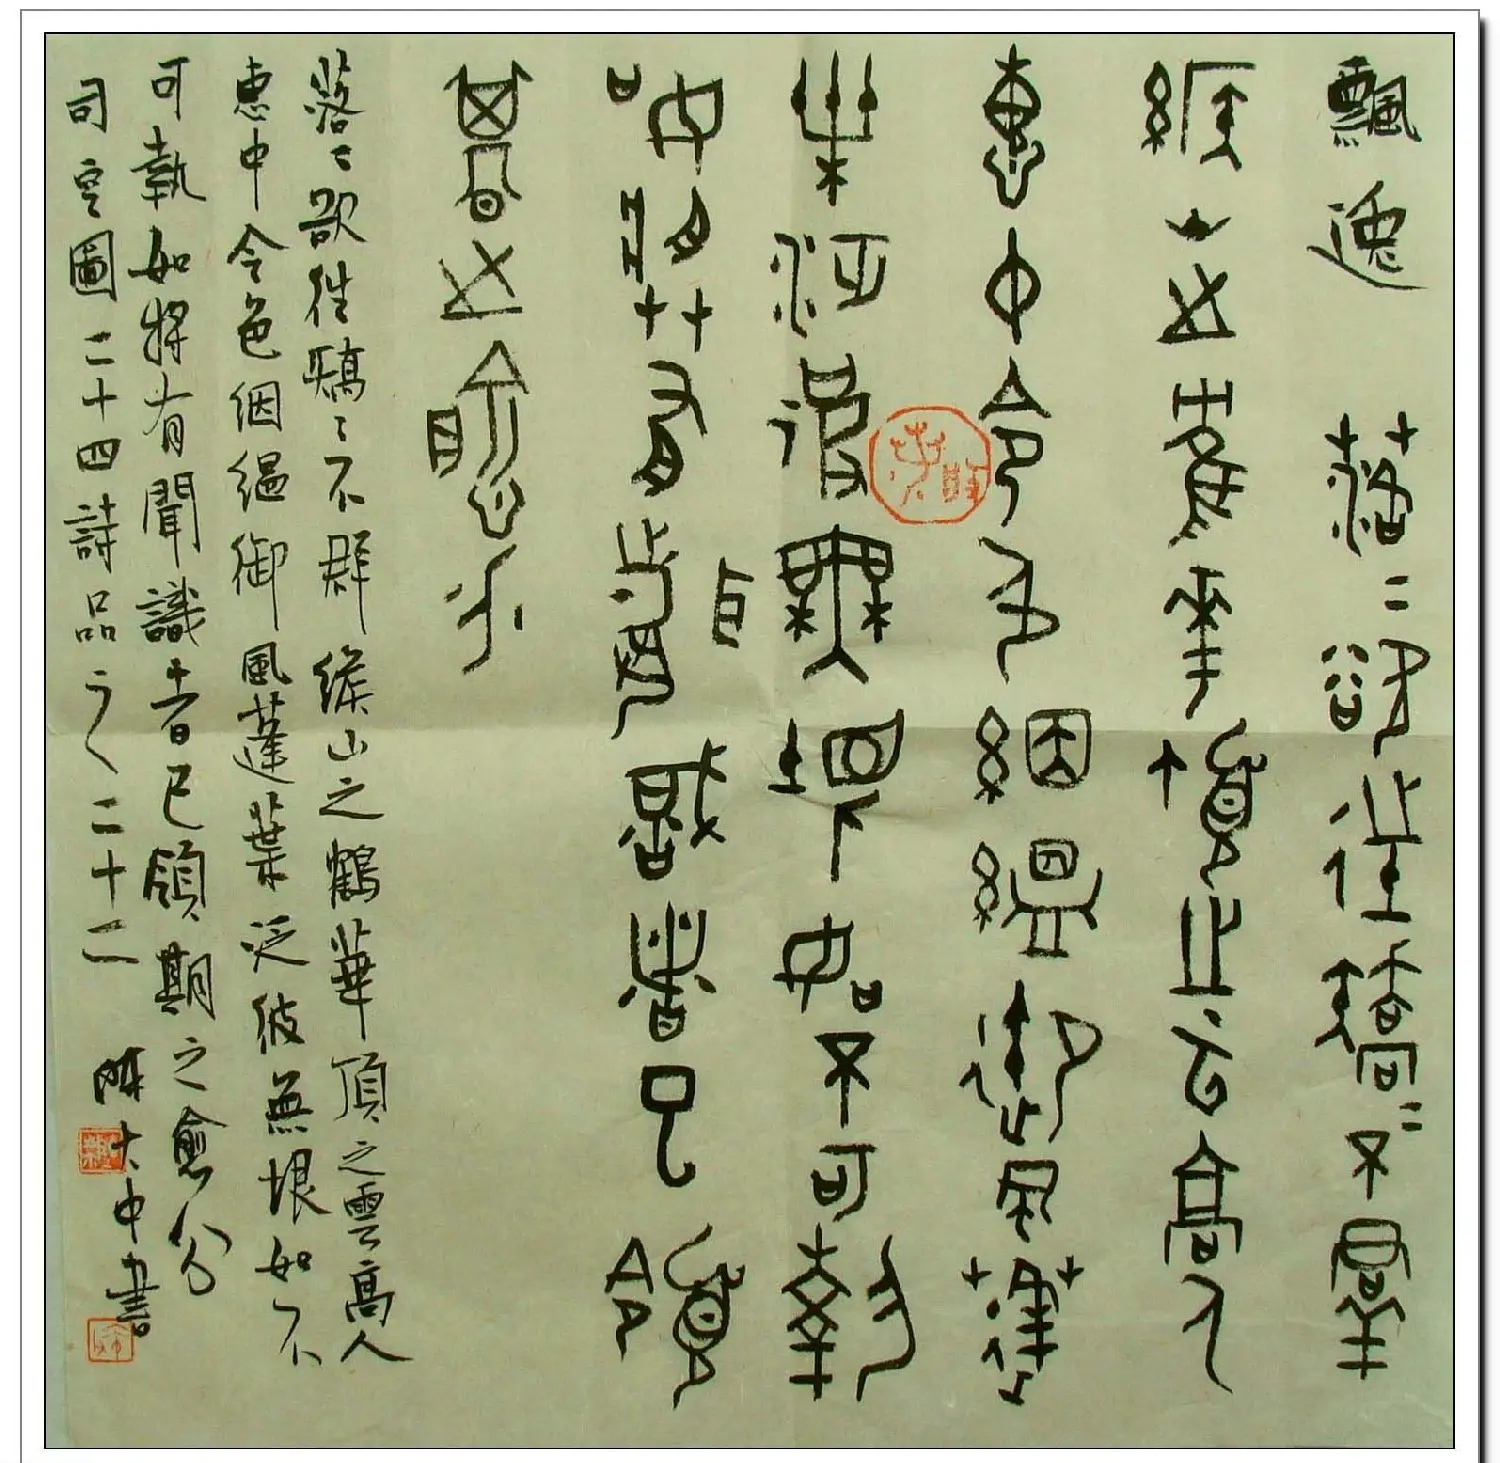 飄逸 落〻欲往矯〻不羣
緱山之鶴華頂之雲高人
惠中令色絪縕御風蓬
葉泛彼無垠如不可執
如將有聞識者已領
期之愈分
落〻欲往矯〻不群緱山之鶴華頂之雲高人
惠中令色絪緼御風蓬葉泛彼無垠如不
可執如將有聞識者已領期之愈分
司空圖二十四詩品之二十二 陳大中書